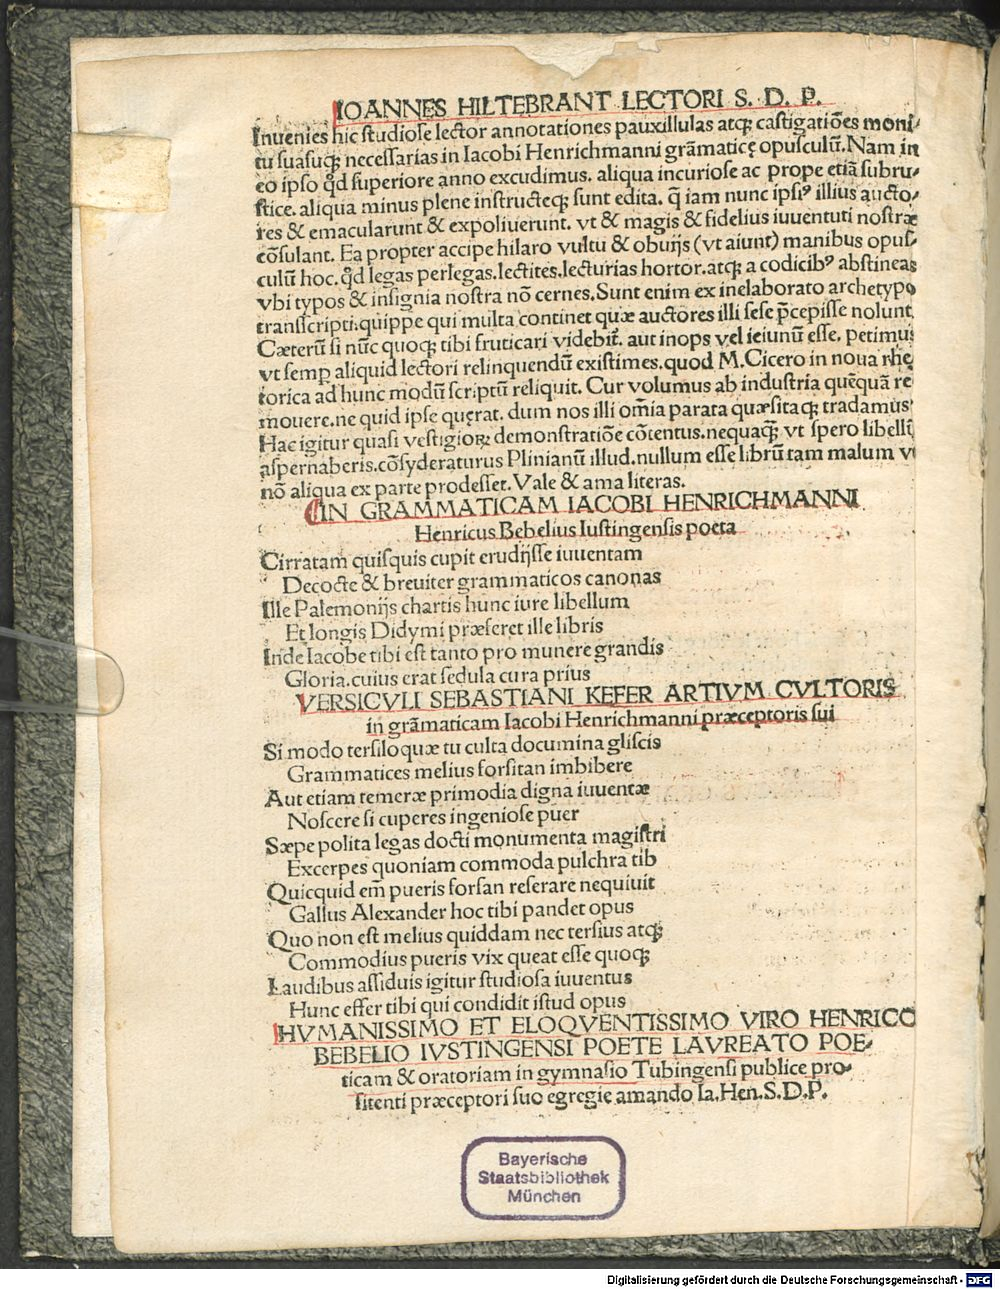 IOANNES HILTEBRANT LECTORI S. D. P.
Inuenies hic studiose lector annotationes pauxillulas atqꝫ castigatiōes moni⸗
tu suasuqꝫ necessarias in Iacobi Henrichmanni grāmaticę opusculū. Nam in
eo ipso qd̄ superiore anno excudimus. aliqua incuriose ac prope etiā subru⸗
stice. aliqua minus plene instructeqꝫ sunt edita. q̄ iam nunc ipsiꝰ illius aucto⸗
res & emacularunt & expoliuerunt. vt & magis & fidelius iuuentuti nostræ
cōsulant. Ea propter accipe hilaro vultu & obuijs (vt aiunt) manibus opus⸗
culū hoc. qd̄ legas perlegas. lectites. lecturias hortor. atqꝫ a codicibꝰ abstineas
vbi typos & insignia nostra nō cernes. Sunt enim ex inelaborato archetypo
transscripti. quippe qui multa continet quæ auctores illi sese p̄cepisse nolunt
Cæterū si nūc quoqꝫ tibi fruticari videbit̄. aut inops vel ieiunū esse. petimus
vt semp̱ aliquid lectori relinquendū existimes. quod M. Cicero in noua rhe
torica ad hunc modū scriptū reliquit. Cur volumus ab industria quēquā re
mouere. ne quid ipse quęrat. dum nos illi om̄ia parata quæsitaqꝫ tradamus
Hac igitur quasi vestigioꝝ demonstratiōe cōtentus. nequaqꝫ̄ vt spero libellū
aspernaberis. cōsyderaturus Plinianū illud. nullum esse librū tam malum vt
nō aliqua ex parte prodesset. Vale & ama literas.
IN GRAMMATICAM IACOBI HENRICHMANNI
Henricus Bebelius Iustingensis poeta
Cirratam quisquis cupit erudijsse iuuentam
Decocte & breuiter grammaticos canonas
Ille Palemonijs chartis hunc iure libellum
Et longis Didymi præferet ille libris
Inde Iacobe tibi est tanto pro munere grandis
Gloria. cuius erat sedula cura prius
VERSICVLI SEBASTIANI KEFER ARTIVM CVLTORIS
in grāmaticam Iacobi Henrichmanni præceptoris sui
Si modo tersiloquæ tu culta documina gliscis
Grammatices melius forsitan imbibere
Aut etiam temeræ primodia digna iuuentæ
Noscere si cuperes ingeniose puer
Sæpe polita legas docti monumenta magistri
Excerpes quoniam commoda pulchra tib
Quicquid em̄ pueris forsan reserare nequiuit
Gallus Alexander hoc tibi pandet opus
Quo non est melius quiddam nec tersius atqꝫ
Commodius pueris vix queat esse quoqꝫ
Laudibus assiduis igitur studiosa iuuentus
Hunc effer tibi qui condidit istud opus
HVMANISSIMO ET ELOQVENTISSIMO VIRO HENRICO
BEBELIO IVSTINGENSI POETE LAVREATO POE⸗
ticam & oratoriam in gymnasio Tubingensi publice pro⸗
fitenti præceptori suo egregie amando Ia. Hen. S. D. P.
Bayerische
Staatsbibliothek
München
Digitalisierung gefördert durch die Deutsche Forschungsgemeinschaft - DFG